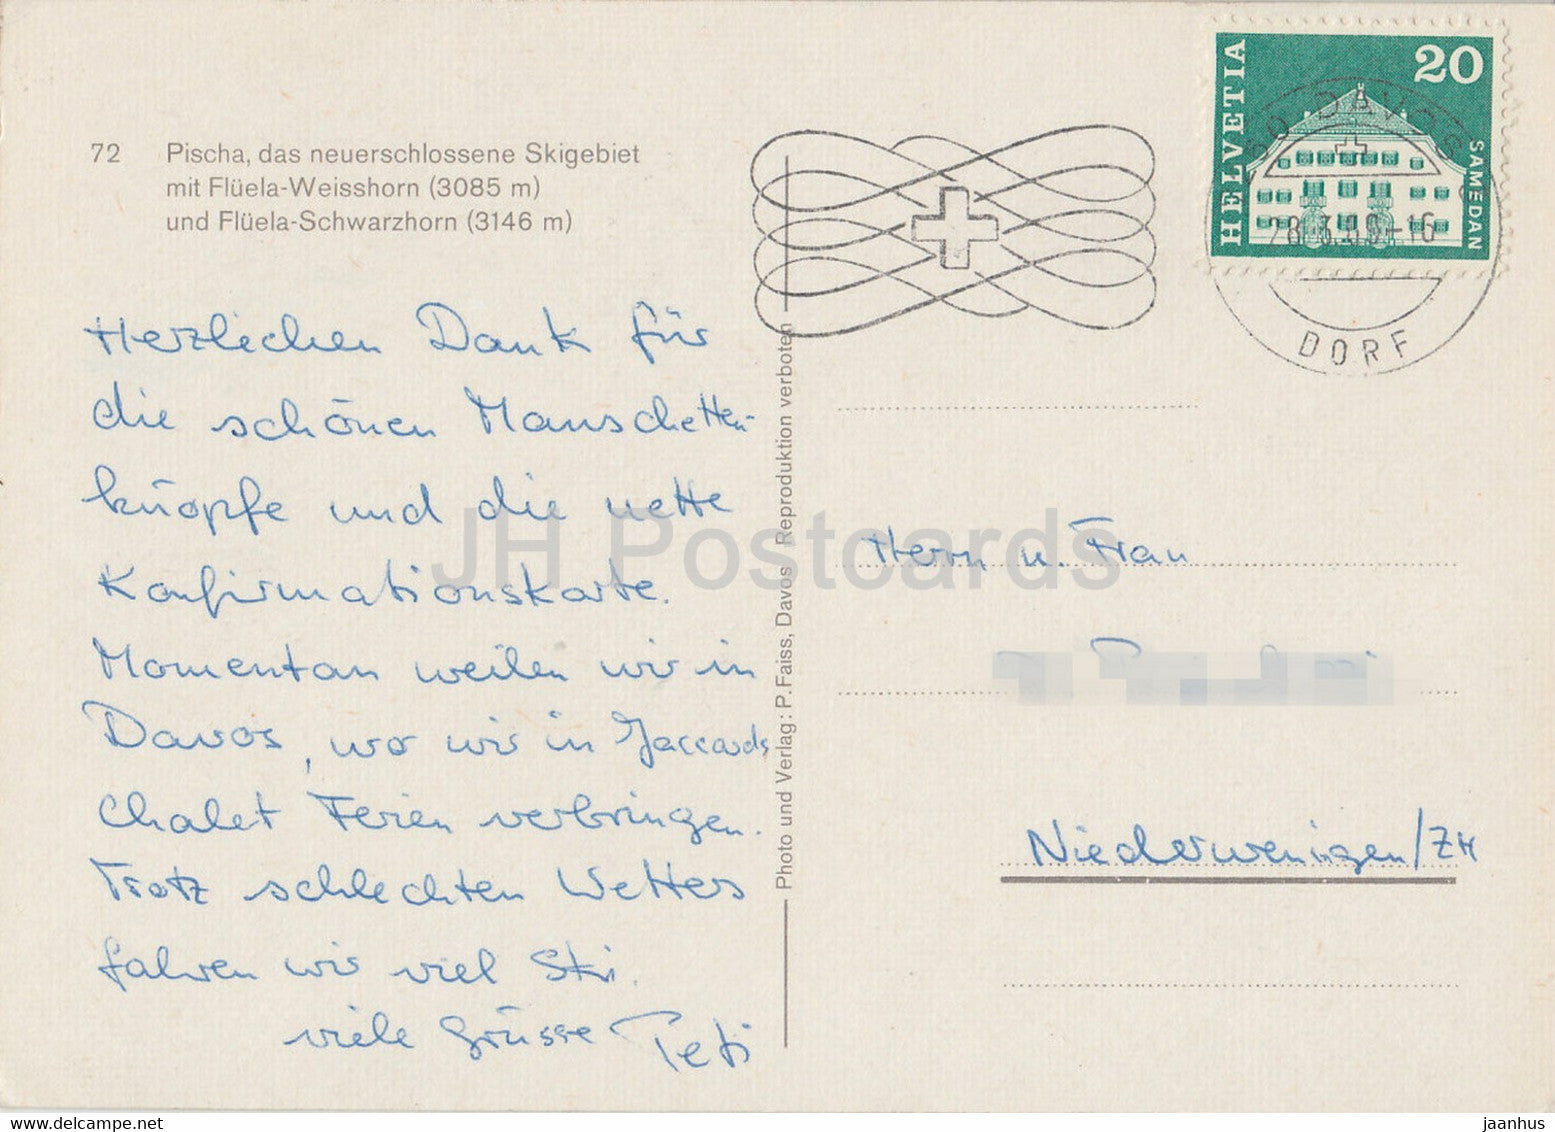 72 Pischa, das neuerschlossene Skigebiet
mit Flüela-Weisshorn (3085 m)
und Flüela-Schwarzhorn (3146 m)
Herzlichen Dank für
die schönen Manschetten-
knöpfe und die nette
Konfirmationskarte.
Momentan weilen wir in
Davos, wo wir in Jaccards
Chalet Ferien verbringen.
Trotz schlechten Wetters
fahren wir viel Ski.
viele Grüsse Peti
Photo und Verlag: P. Faiss, Davos Reproduktion verboten
HELVETIA
20
SAMEDAN
DAVOS
DORF
Herrn u. Frau
Niederweningen/ZH
JH Postcards
delcampe.net
jaanhus